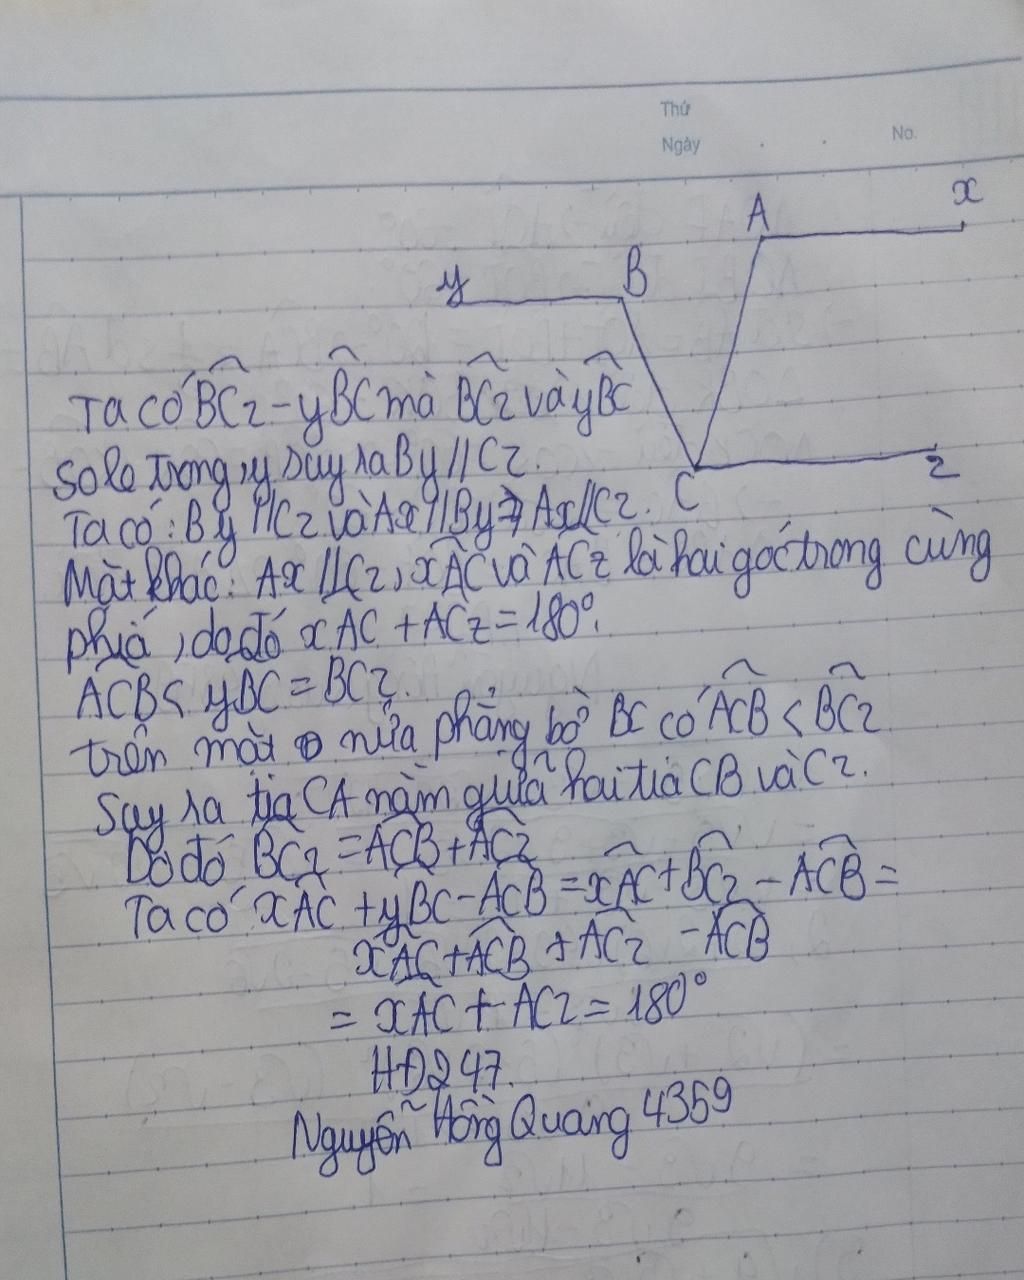 Thứ
Ngày . . No.
A x
y B
C z
Ta có BCz - yBC mà BCz và yBC
sole trong, y suy ra By // Cz.
Ta có: By // Cz và Ax // By ⇒ Ax // Cz.
Mặt khác: Ax // Cz, xAC và ACz là hai góc trong cùng
phía, do đó xAC + ACz = 180°.
ACB < yBC = BCz.
trên một nửa phẳng bờ BC có ACB < BCz
Suy ra tia CA nằm giữa hai tia CB và Cz.
Do đó BCz = ACB + ACz
Ta có xAC + yBC - ACB = xAC + BCz - ACB =
xAC + ACB + ACz - ACB
= xAC + ACz = 180°
HĐ247.
Nguyễn Hồng Quang 4359